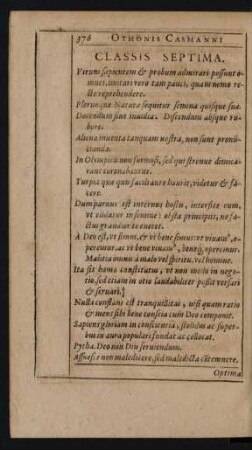 378 OTHONIS CASMANNI
CLASSIS SEPTIMA.
Verum sapientem & probum admirari possunt o-
mnes, imitari vero tam pauci, quam nemo re-
cte reprehendere.
Plerunque Natura sequitur semina quisque suæ.
Docendum sine invidia. Discendum absque ru-
bore.
Aliena inventa tanquam nostra, non sunt pronū-
cianda.
In Olympicis non formosi, sed qui strenue dimica-
rant coronabantur.
Turpia quæ qui facit aure haurit, videtur & fa-
cere.
Dum parvus est internus hostis, interfice eum,
vt elidatur in semine: obsta principiis, ne fa-
ctus grandior te enecet.
A Deo est, vt simus, & vt bene simus: vt vivam,
operemur, ac vt bene vivam, bene operemur.
Malitia in malo vel spiritu, vel homine.
Ita sis homo constitutus, vt non modo in nego-
tio, sed etiam in otio laudabiliter possit versari
& servari.
Nulla constans est tranquillitas, nisi quam ratio
& mens sibi bene conscia cum Deo componit.
Sapiens gloriam in conscientia, stolidus ac super-
bus in aura populari fundat ac collocat.
Pytha. Deo non Diu serviendum.
Assuesce non maledicere, sed maledicta contemnere.
Optima